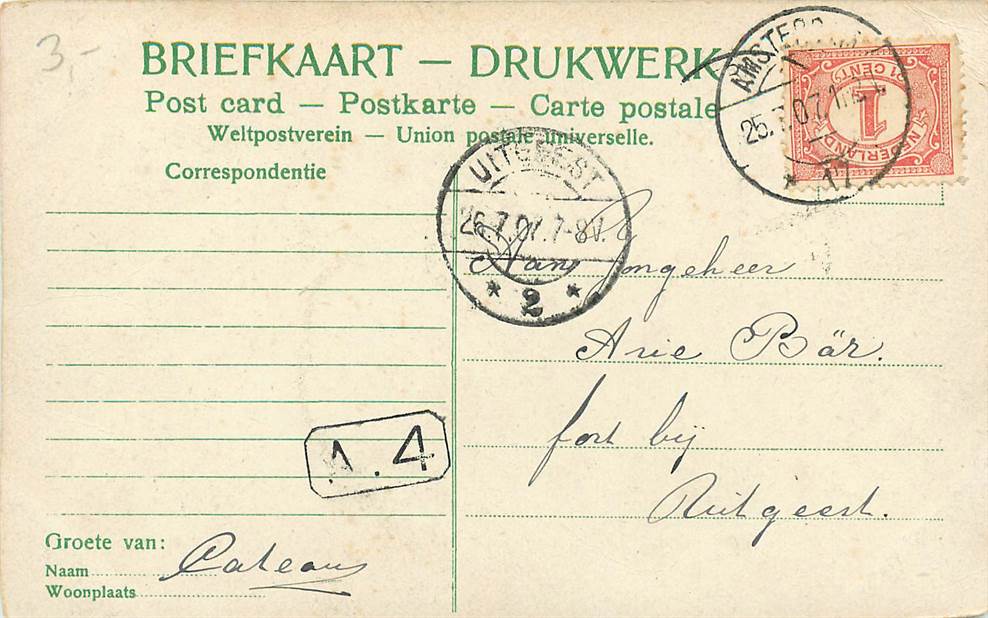 3,-
BRIEFKAART — DRUKWERK
Post card — Postkarte — Carte postale
Weltpostverein — Union postale universelle.
Correspondentie
AMSTERDAM
25.7.07.
17
1 CENT
1
NEDERLAND
UITGEEST
26.7.07.7-8V.
* 2 *
Aan Jongeheer
Arie Bär.
fort bij
Uitgeest.
1.4
Groete van:
Naam
Woonplaats